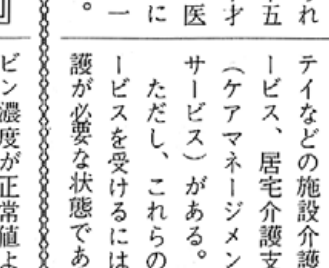 れ
五
才
医
に
一
。
テイなどの施設介護
ービス、居宅介護支
（ケアマネージメン
サービス）がある。
ただし、これらの
ービスを受けるには
護が必要な状態であ
ビン濃度が正常値よ